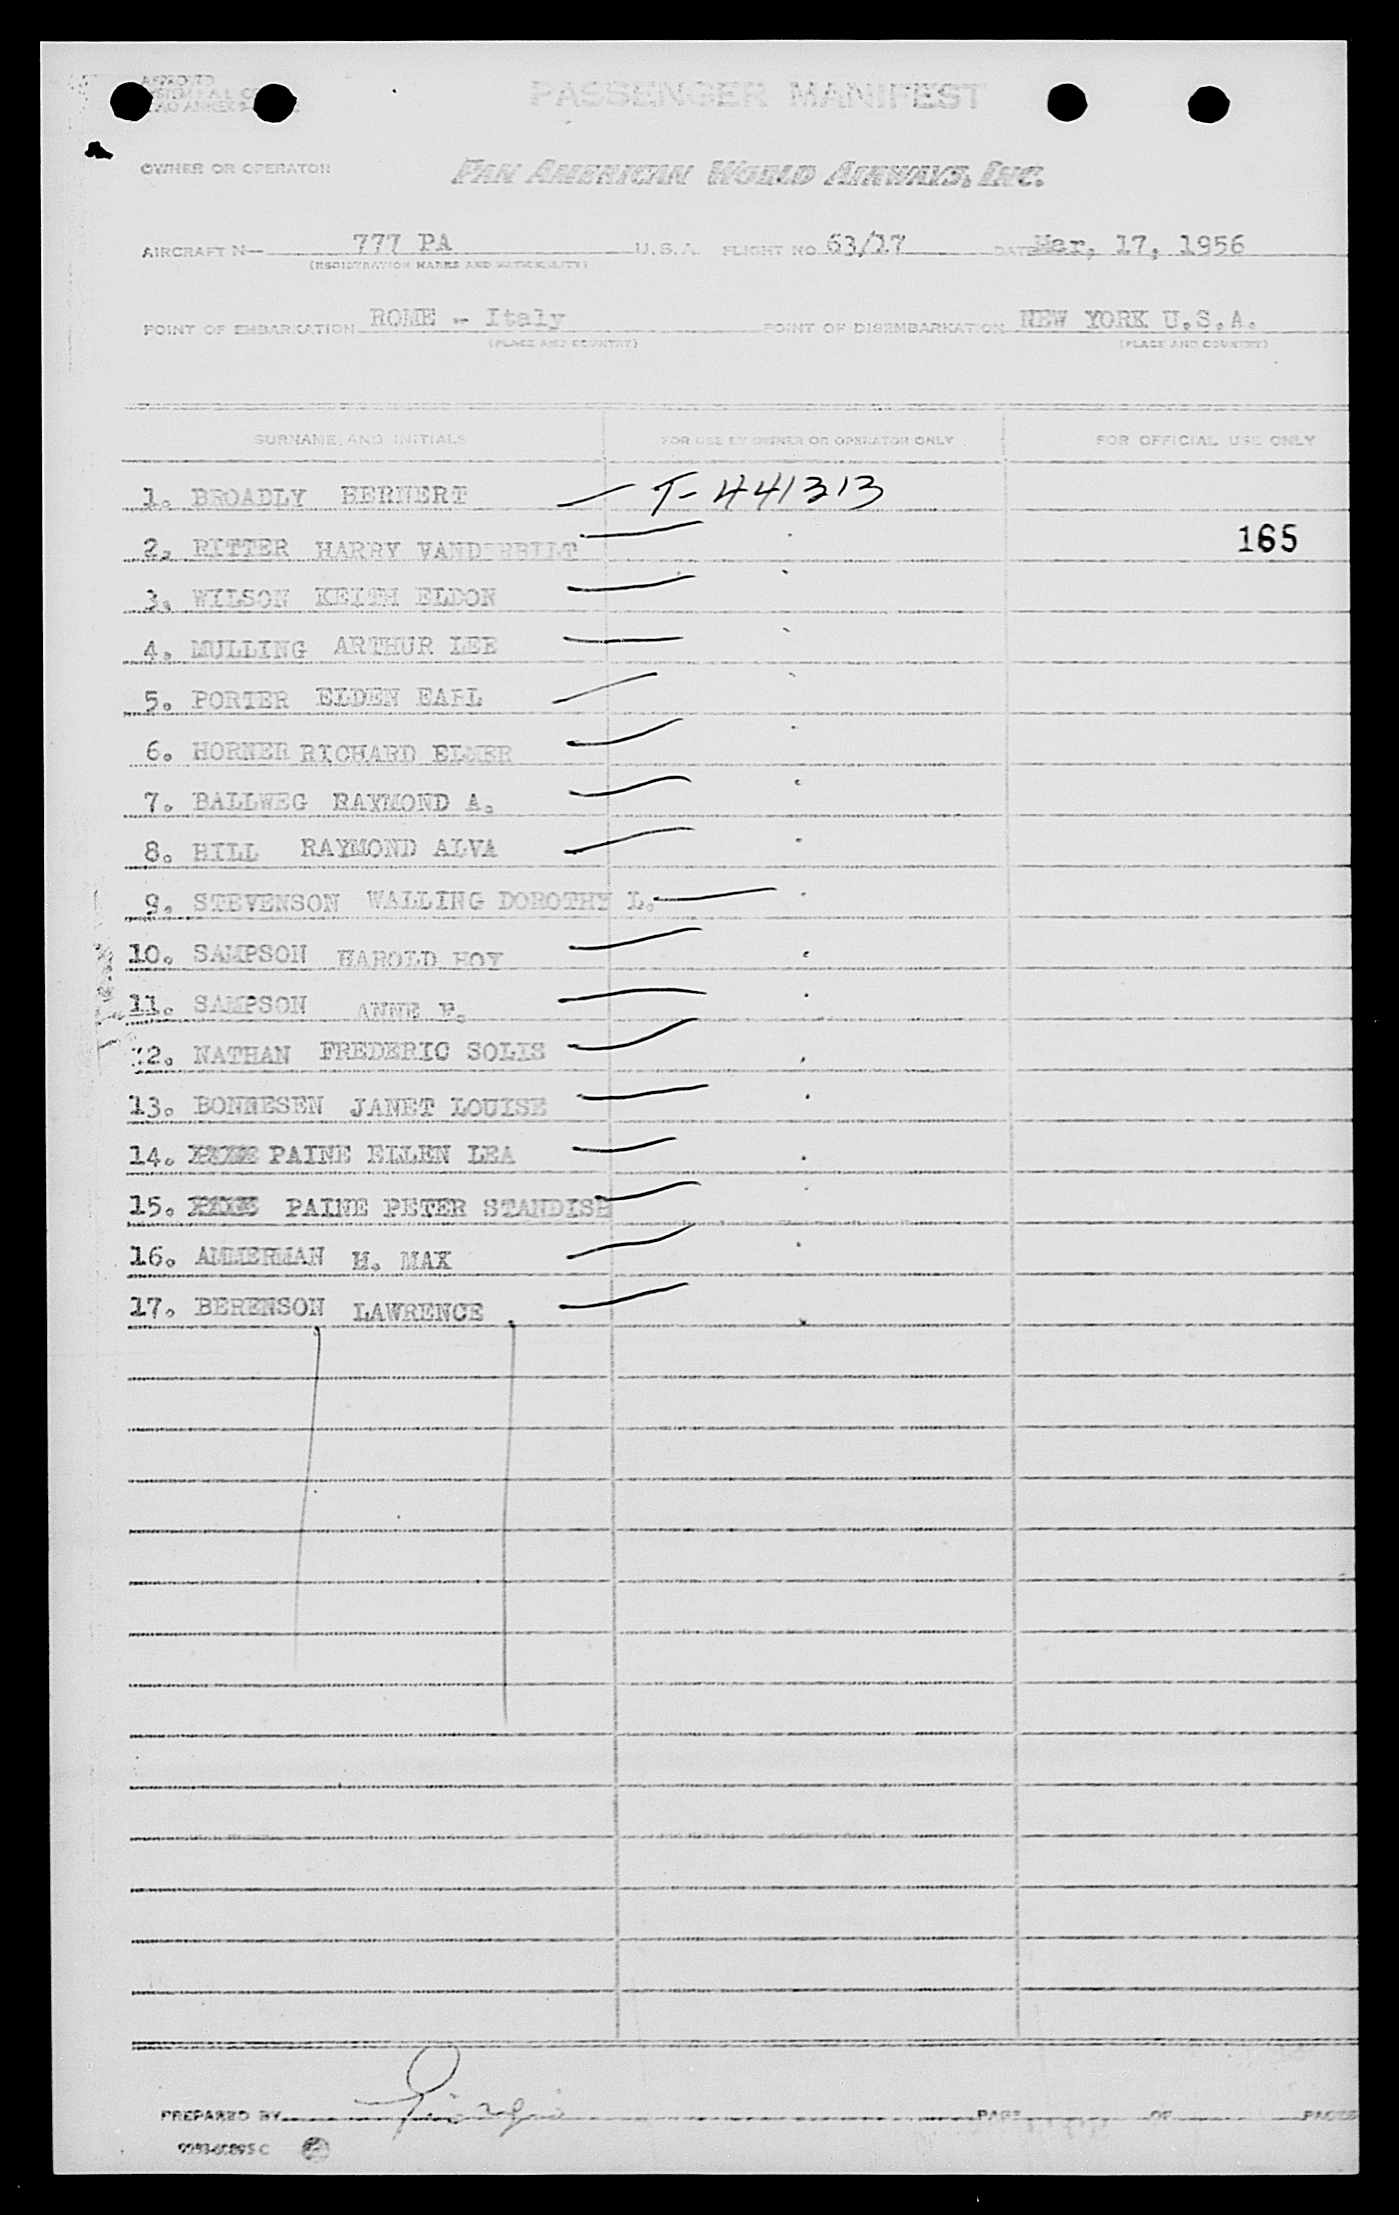 APPROVED
PASSENGER MANIFEST
OWNER OR OPERATOR PAN AMERICAN WORLD AIRWAYS, INC.
AIRCRAFT N— 777 PA U.S.A. FLIGHT NO. 63/17 DATE Mar, 17, 1956
(REGISTRATION MARKS AND NATIONALITY)
POINT OF EMBARKATION ROME - Italy POINT OF DISEMBARKATION NEW YORK U.S.A.
(PLACE AND COUNTRY) (PLACE AND COUNTRY)
SURNAME AND INITIALS FOR USE BY OWNER OR OPERATOR ONLY FOR OFFICIAL USE ONLY
1. BROADLY HERNERT T-441313
2. RITTER HARRY VANDERBILT 165
3. WILSON KEITH ELDON
4. MULLING ARTHUR LEE
5. PORTER ELDEN EARL
6. HORNER RICHARD ELMER
7. BALLWEG RAYMOND A.
8. HILL RAYMOND ALVA
9. STEVENSON WALLING DOROTHY L.
10. SAMPSON HAROLD HOY
11. SAMPSON ANNE F.
12. NATHAN FREDERIC SOLIS
13. BONNESEN JANET LOUISE
14. PAINE ELLEN LEA
15. PAINE PETER STANDISH
16. AMMERMAN H. MAX
17. BERENSON LAWRENCE
PREPARED BY PAGE OF PAGES